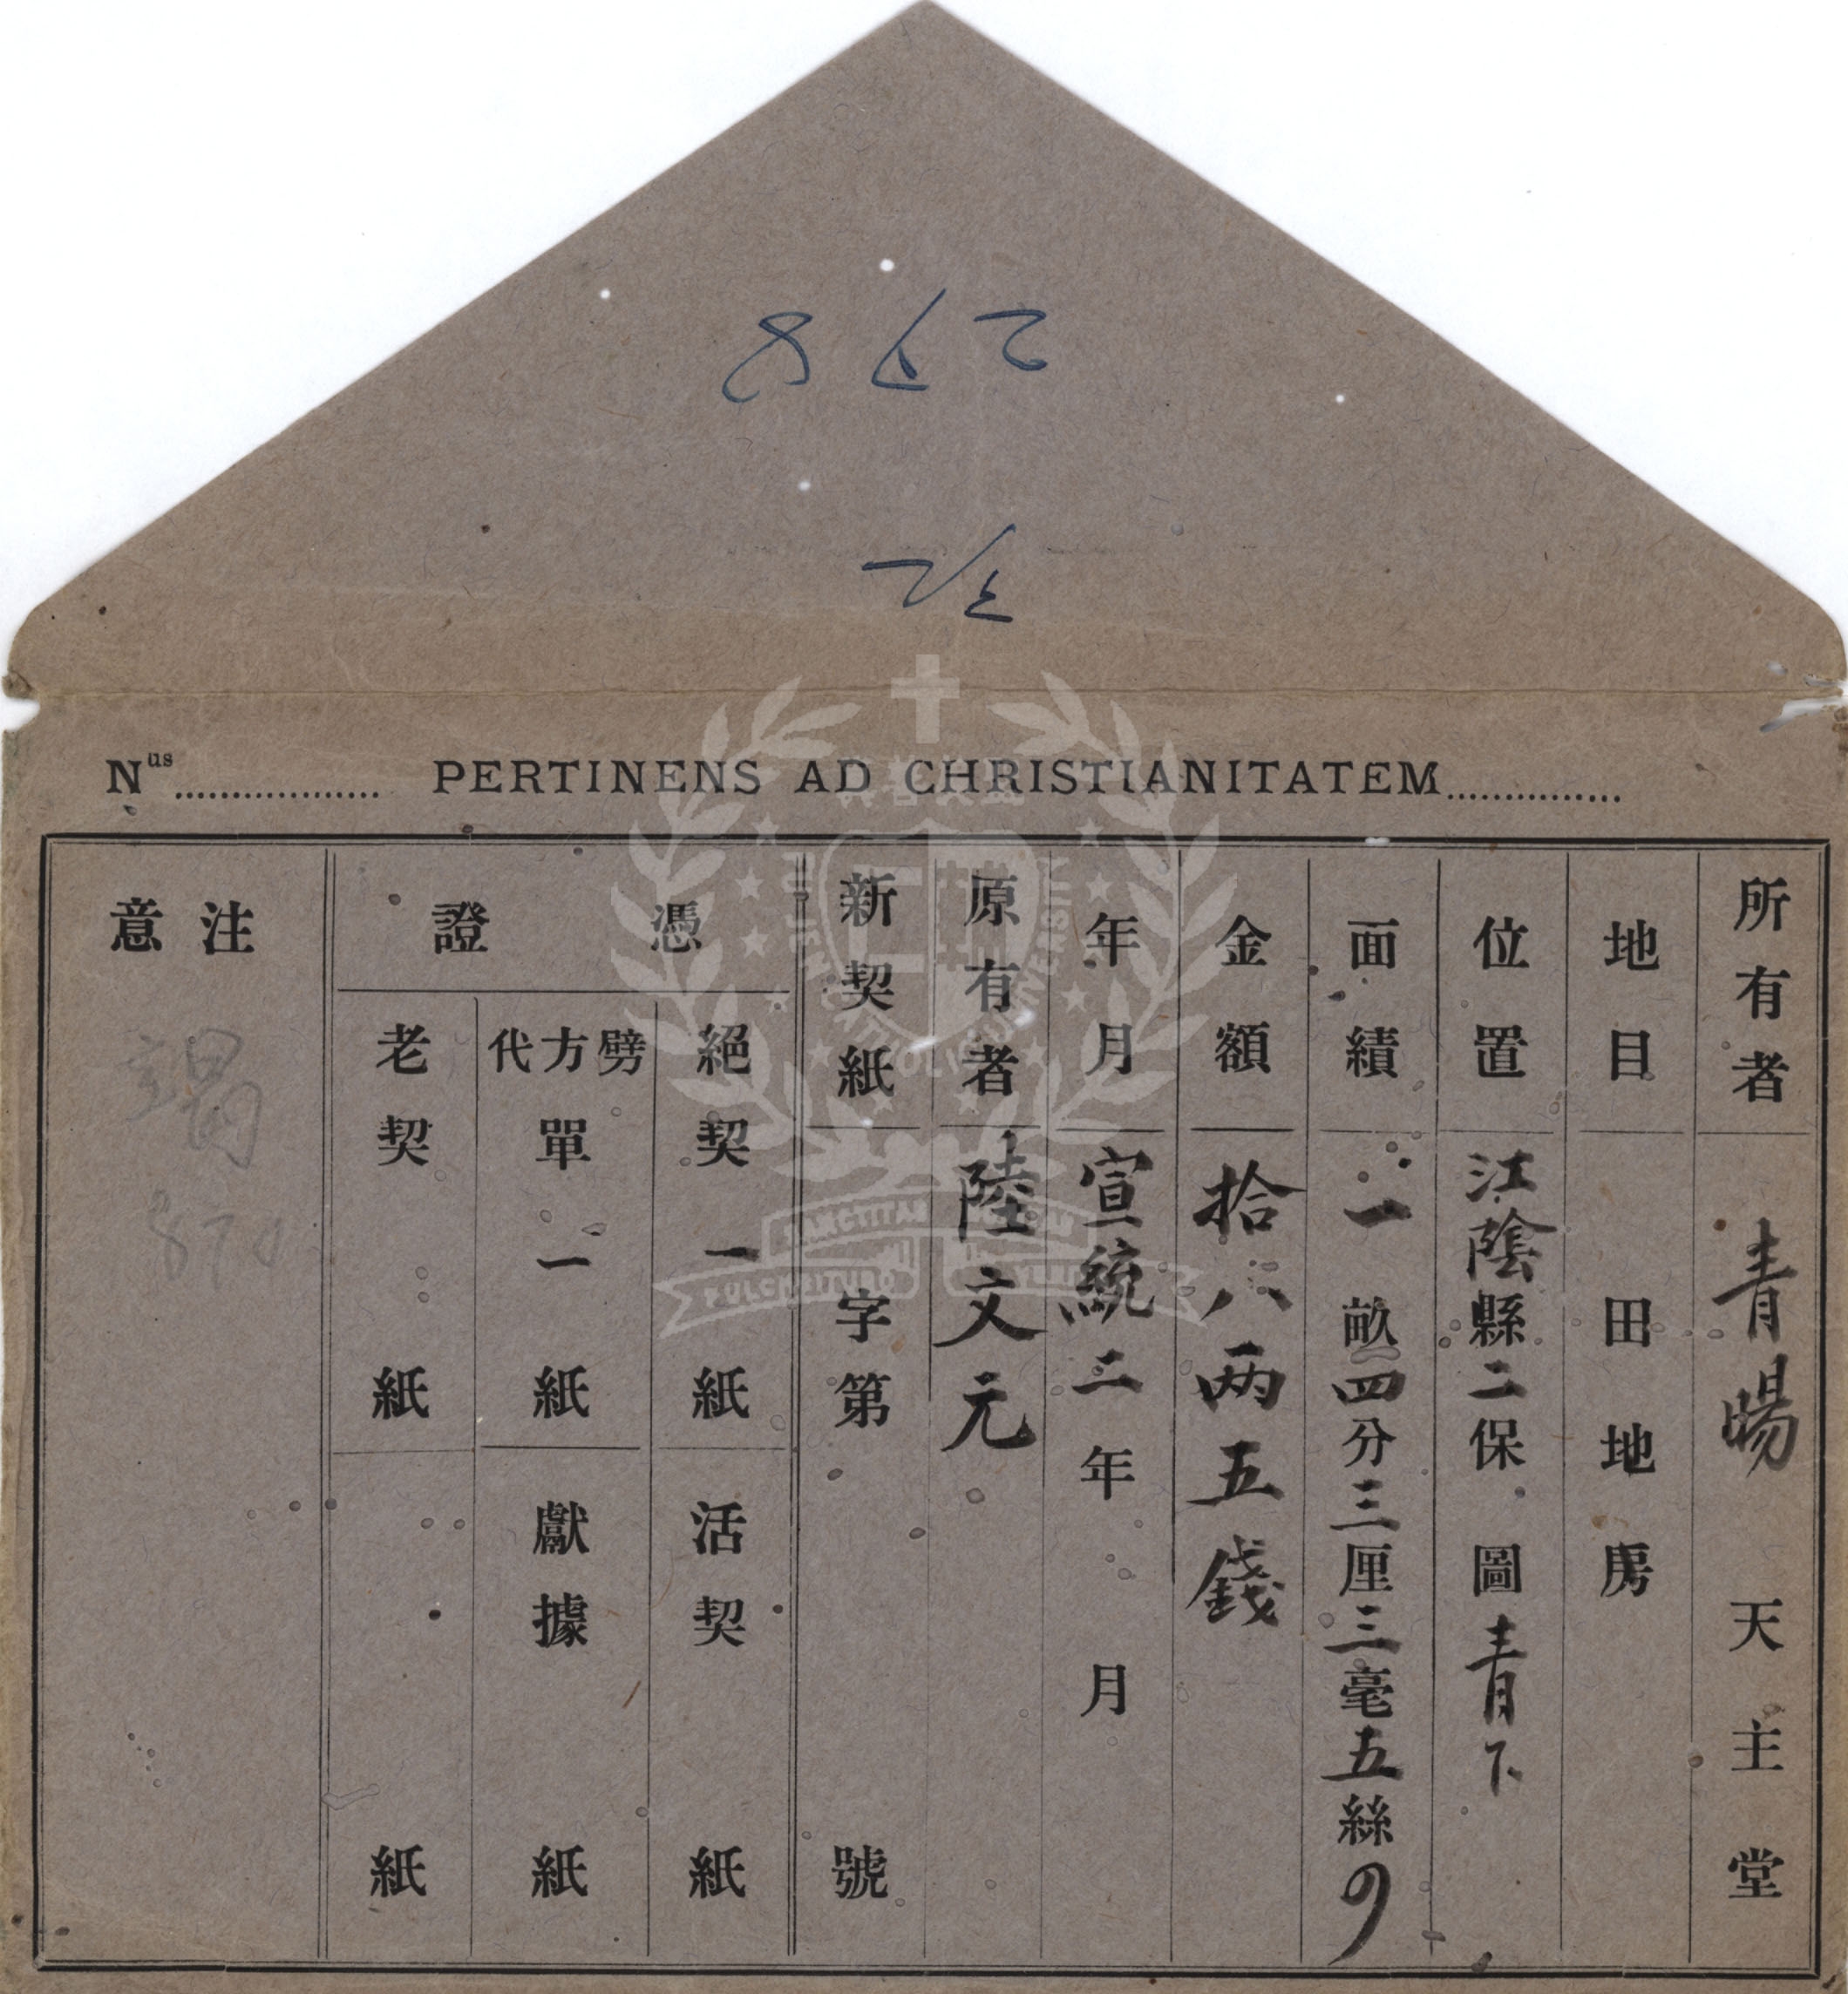 298
Nus PERTINENS AD CHRISTIANITATEM
所有者 青暘 天主堂
地目 田地房
位置 江陰縣二保 圖青下
面績 一畝四分三厘三毫五絲
金額 拾八両五錢
年月 宣統二年 月
原有者 陸文元
新契紙 字第 號
憑證
絕契一紙 活契 紙
劈方代單一紙 獻據 紙
老契 紙 紙
注意
874